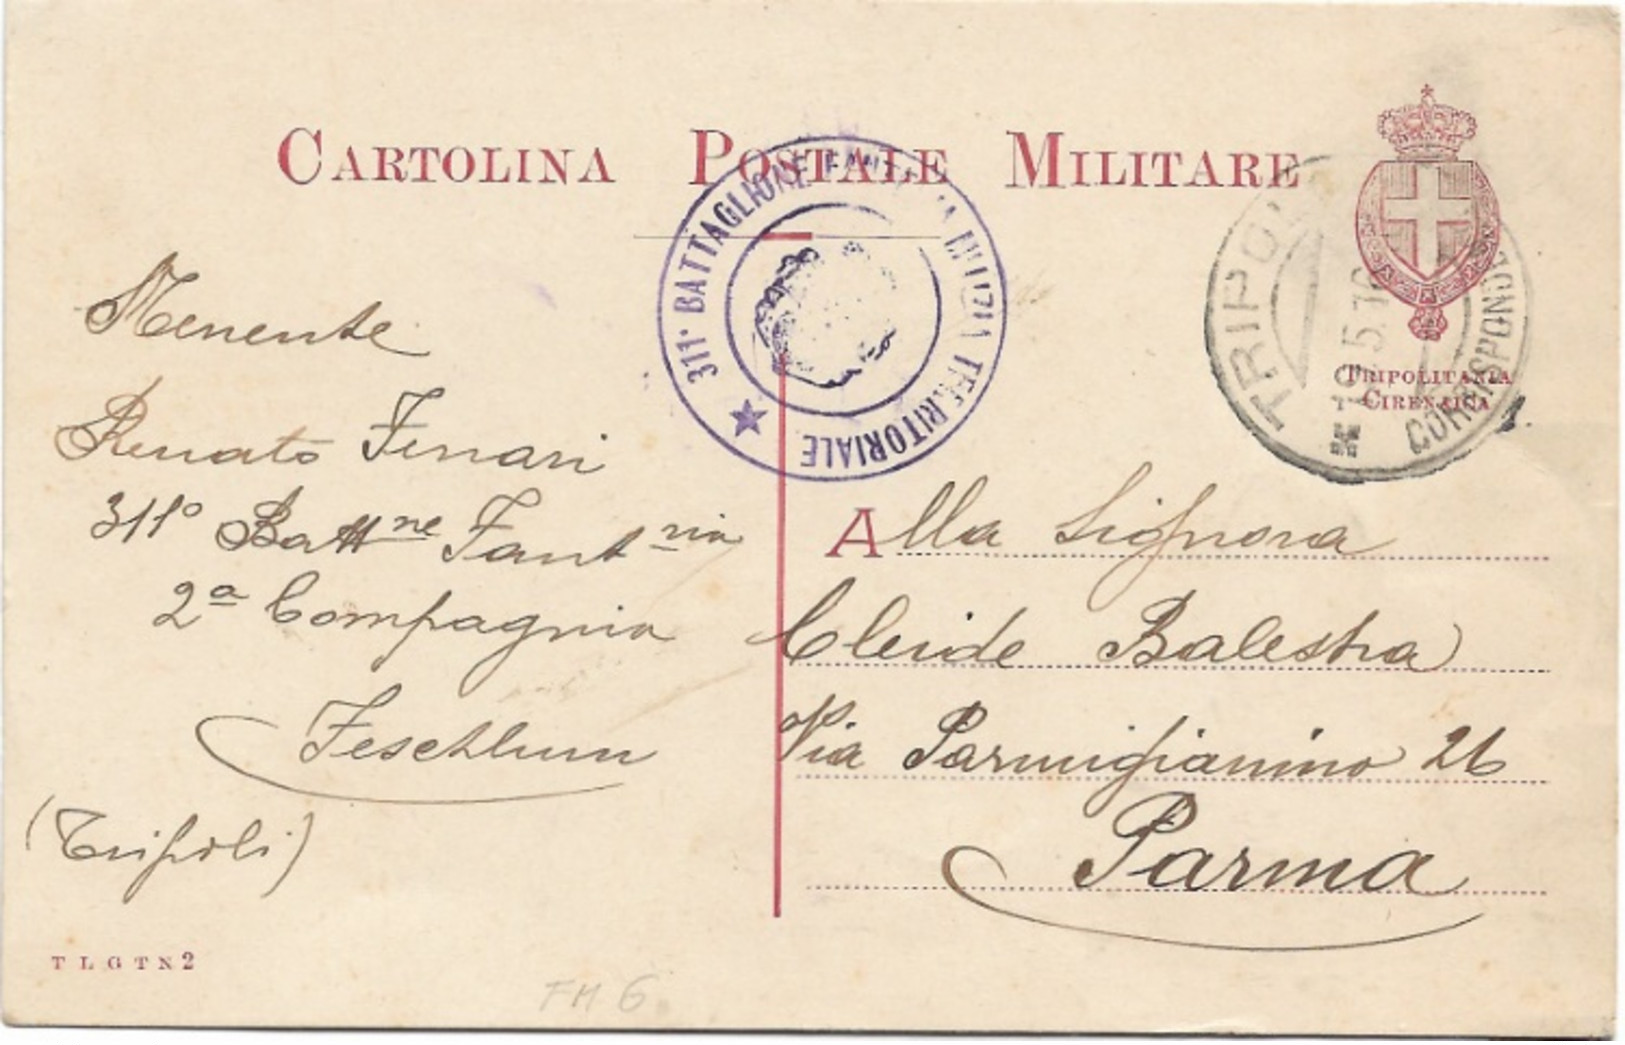 CARTOLINA POSTALE MILITARE
311° BATTAGLIONE FANTERIA MILIZIA TERRITORIALE
TRIPOLI
19.5.16
CORRISPONDE
TRIPOLITANIA
CIRENAICA
Renato Ferrari
311° Batt.ne Fant.ria
2ª Compagnia
Feschlum
(Tripoli)
Alla Signora
Cleide Balestra
Via Parmigianino 26
Parma
T L G T N 2
FM 6